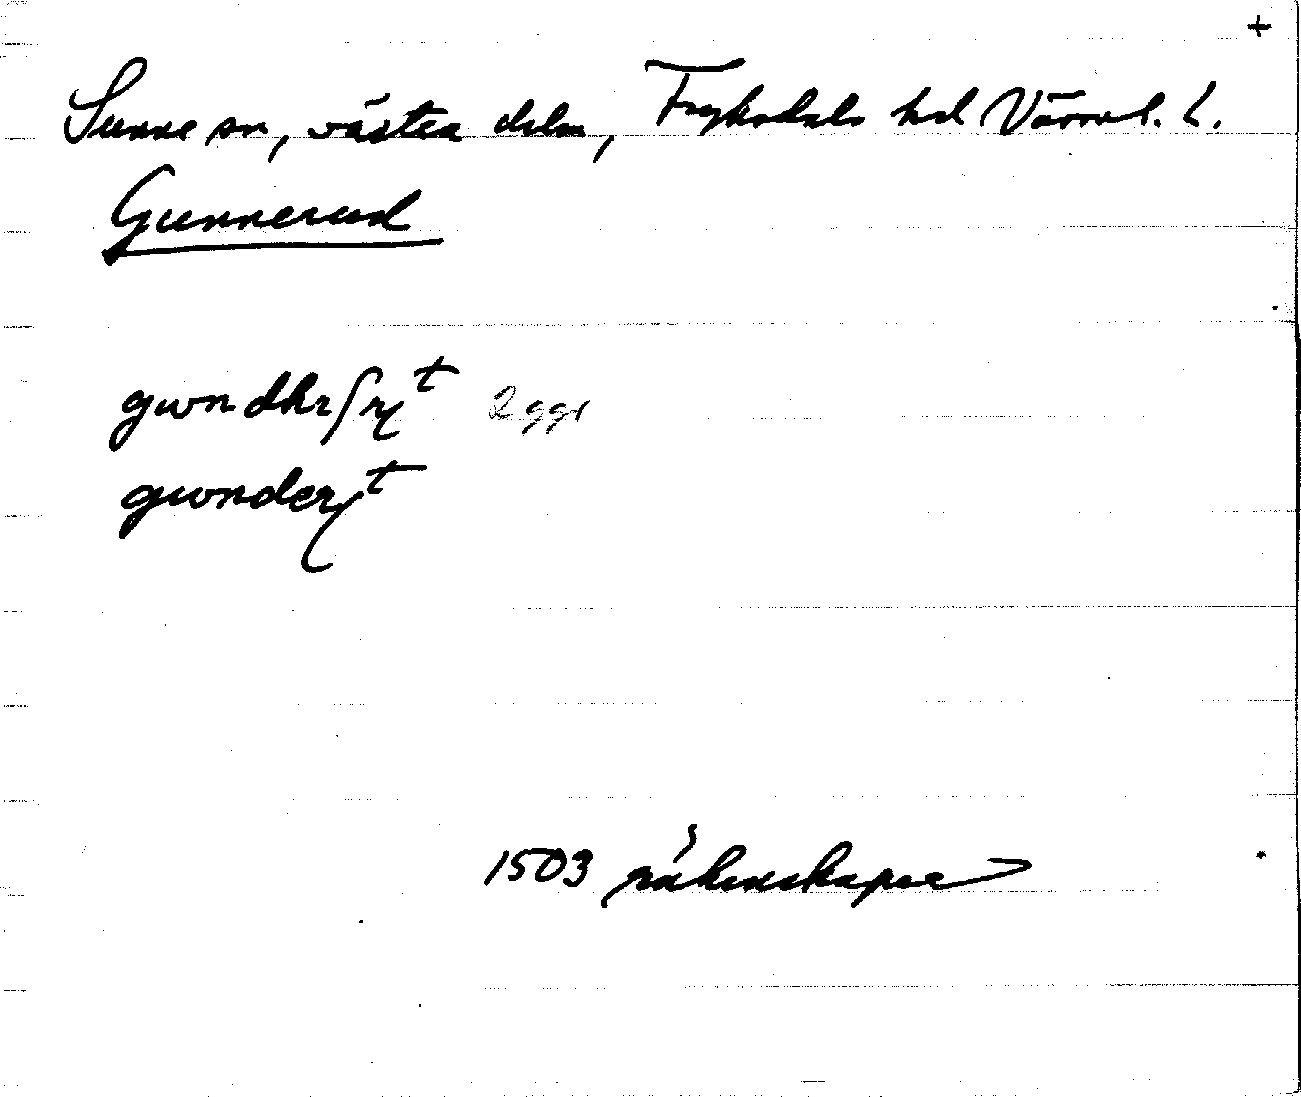 +
Sunne sn, västra delen, Fryksdals hd Värml. L.
Gunnerud
gwndhrſry^t 2 ggr
gwndery^t
1503 räkenskaper